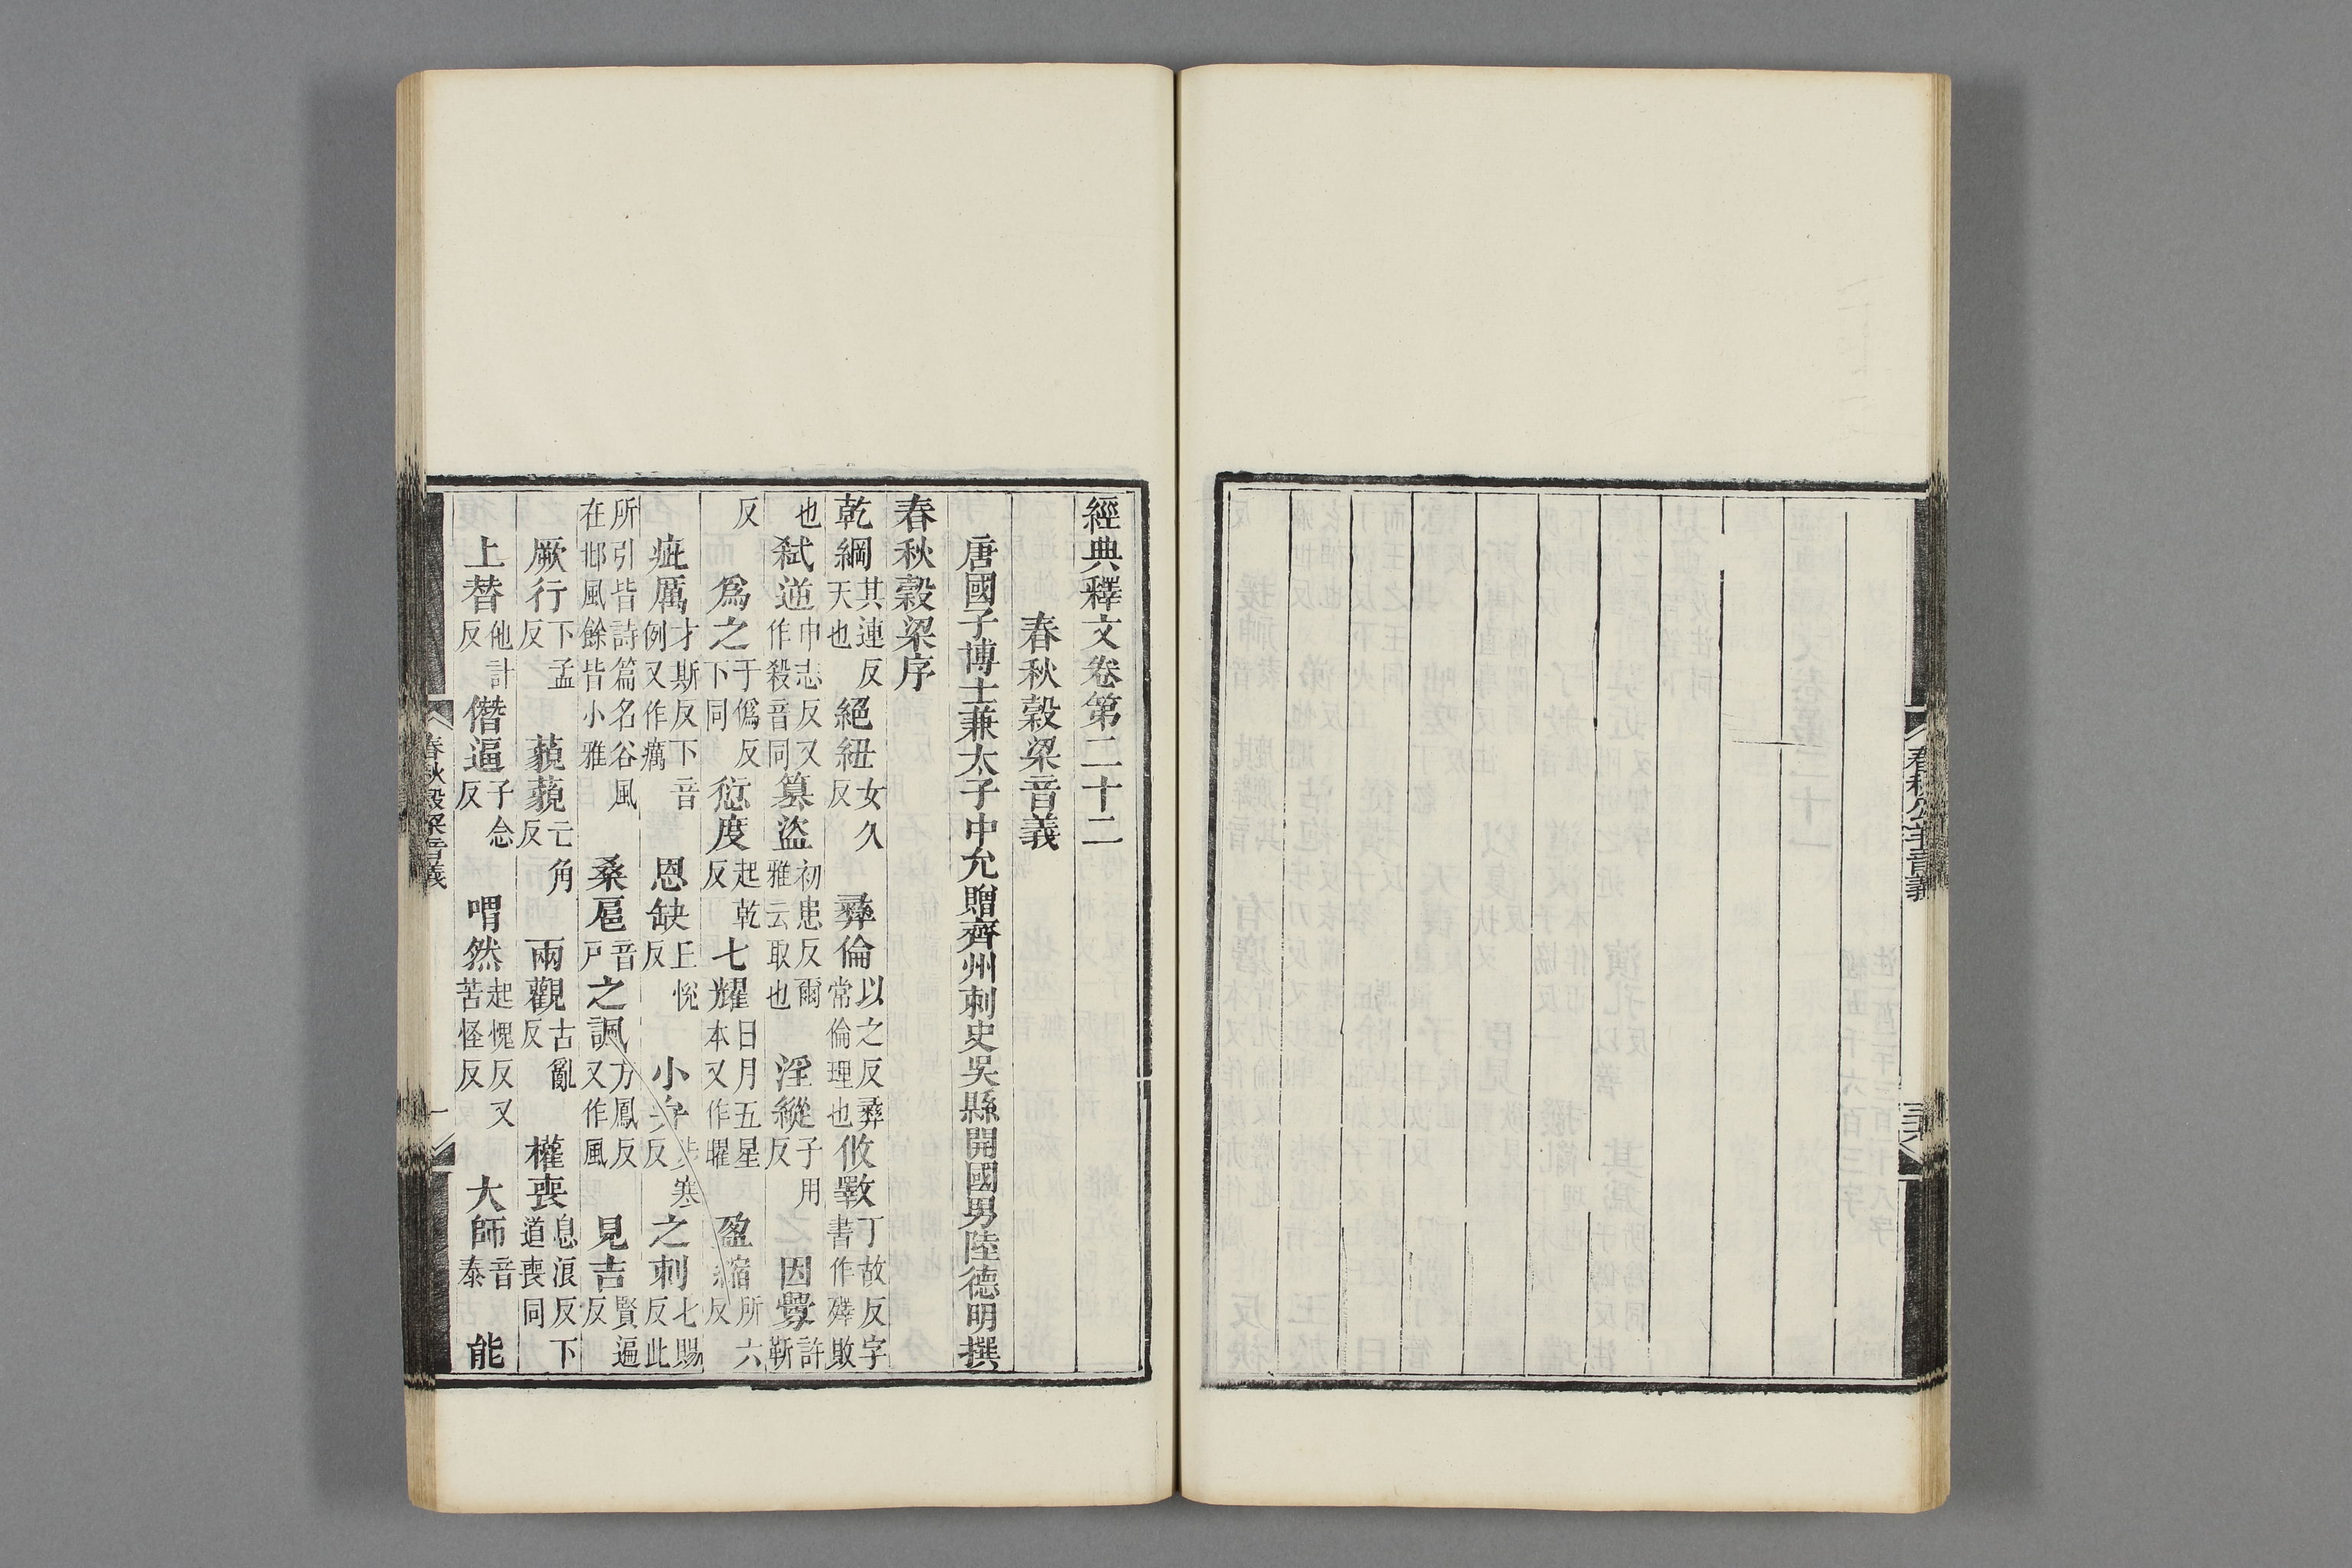 經典釋文卷第二十二
春秋穀梁音義
唐國子博士兼太子中允贈齊州刺史吳縣開國男陸德明撰
春秋穀梁序
乾綱其連反天也 絕紐女久反 彝倫以之反彝常倫理也 攸斁丁故反字書作殬敗
也 弒逆申志反又作殺音同 篡盜初患反爾雅云取也 淫縱子用反 因釁許靳
反 爲之于僞反下同 愆度起乾反 七耀日月五星本又作曜 盈縮所六反
疵厲才斯反下音例又作癘 恩缺丘悅反 小弁步寒反 之刺七賜反此
所引皆詩篇名谷風在邶風餘皆小雅 桑扈音戶 之諷方鳳反又作風 見吉賢遍反
厥行下孟反 藐藐亡角反 兩觀古亂反 權喪息浪反下道喪同
上替他計反 僭逼子念反 喟然起愧反又苦怪反 大師音泰 能
春秋穀梁音義 一
春秋公羊音義